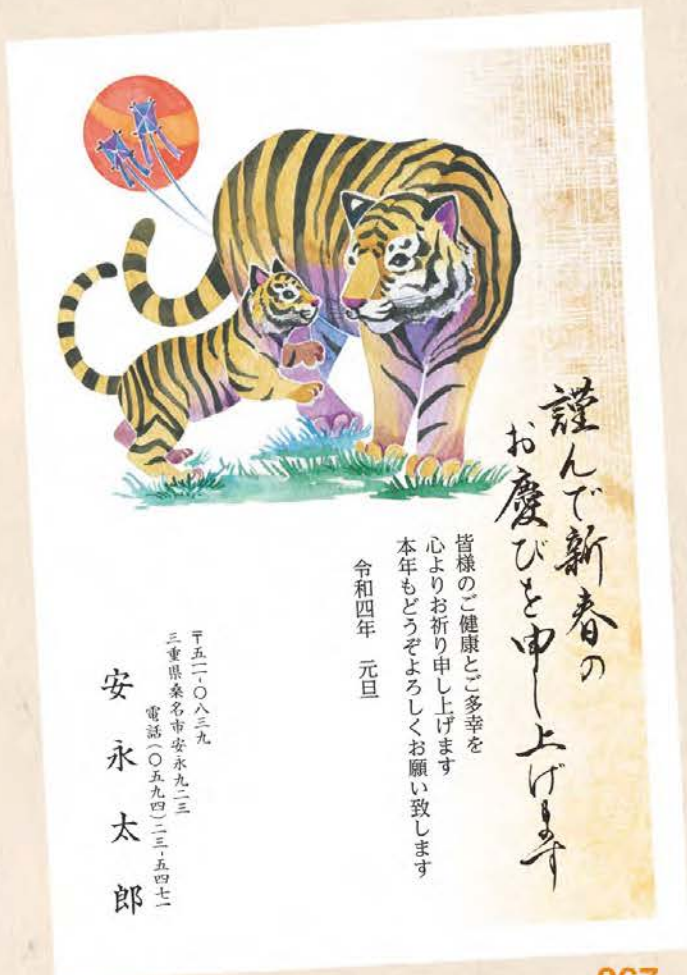 謹んで新春の
お慶びを申し上げます
皆様のご健康とご多幸を
心よりお祈り申し上げます
本年もどうぞよろしくお願い致します
令和四年　元旦
〒五一一-〇八三九
三重県桑名市安永九二三
電話(〇五九四)二三-五四七一
安永太郎